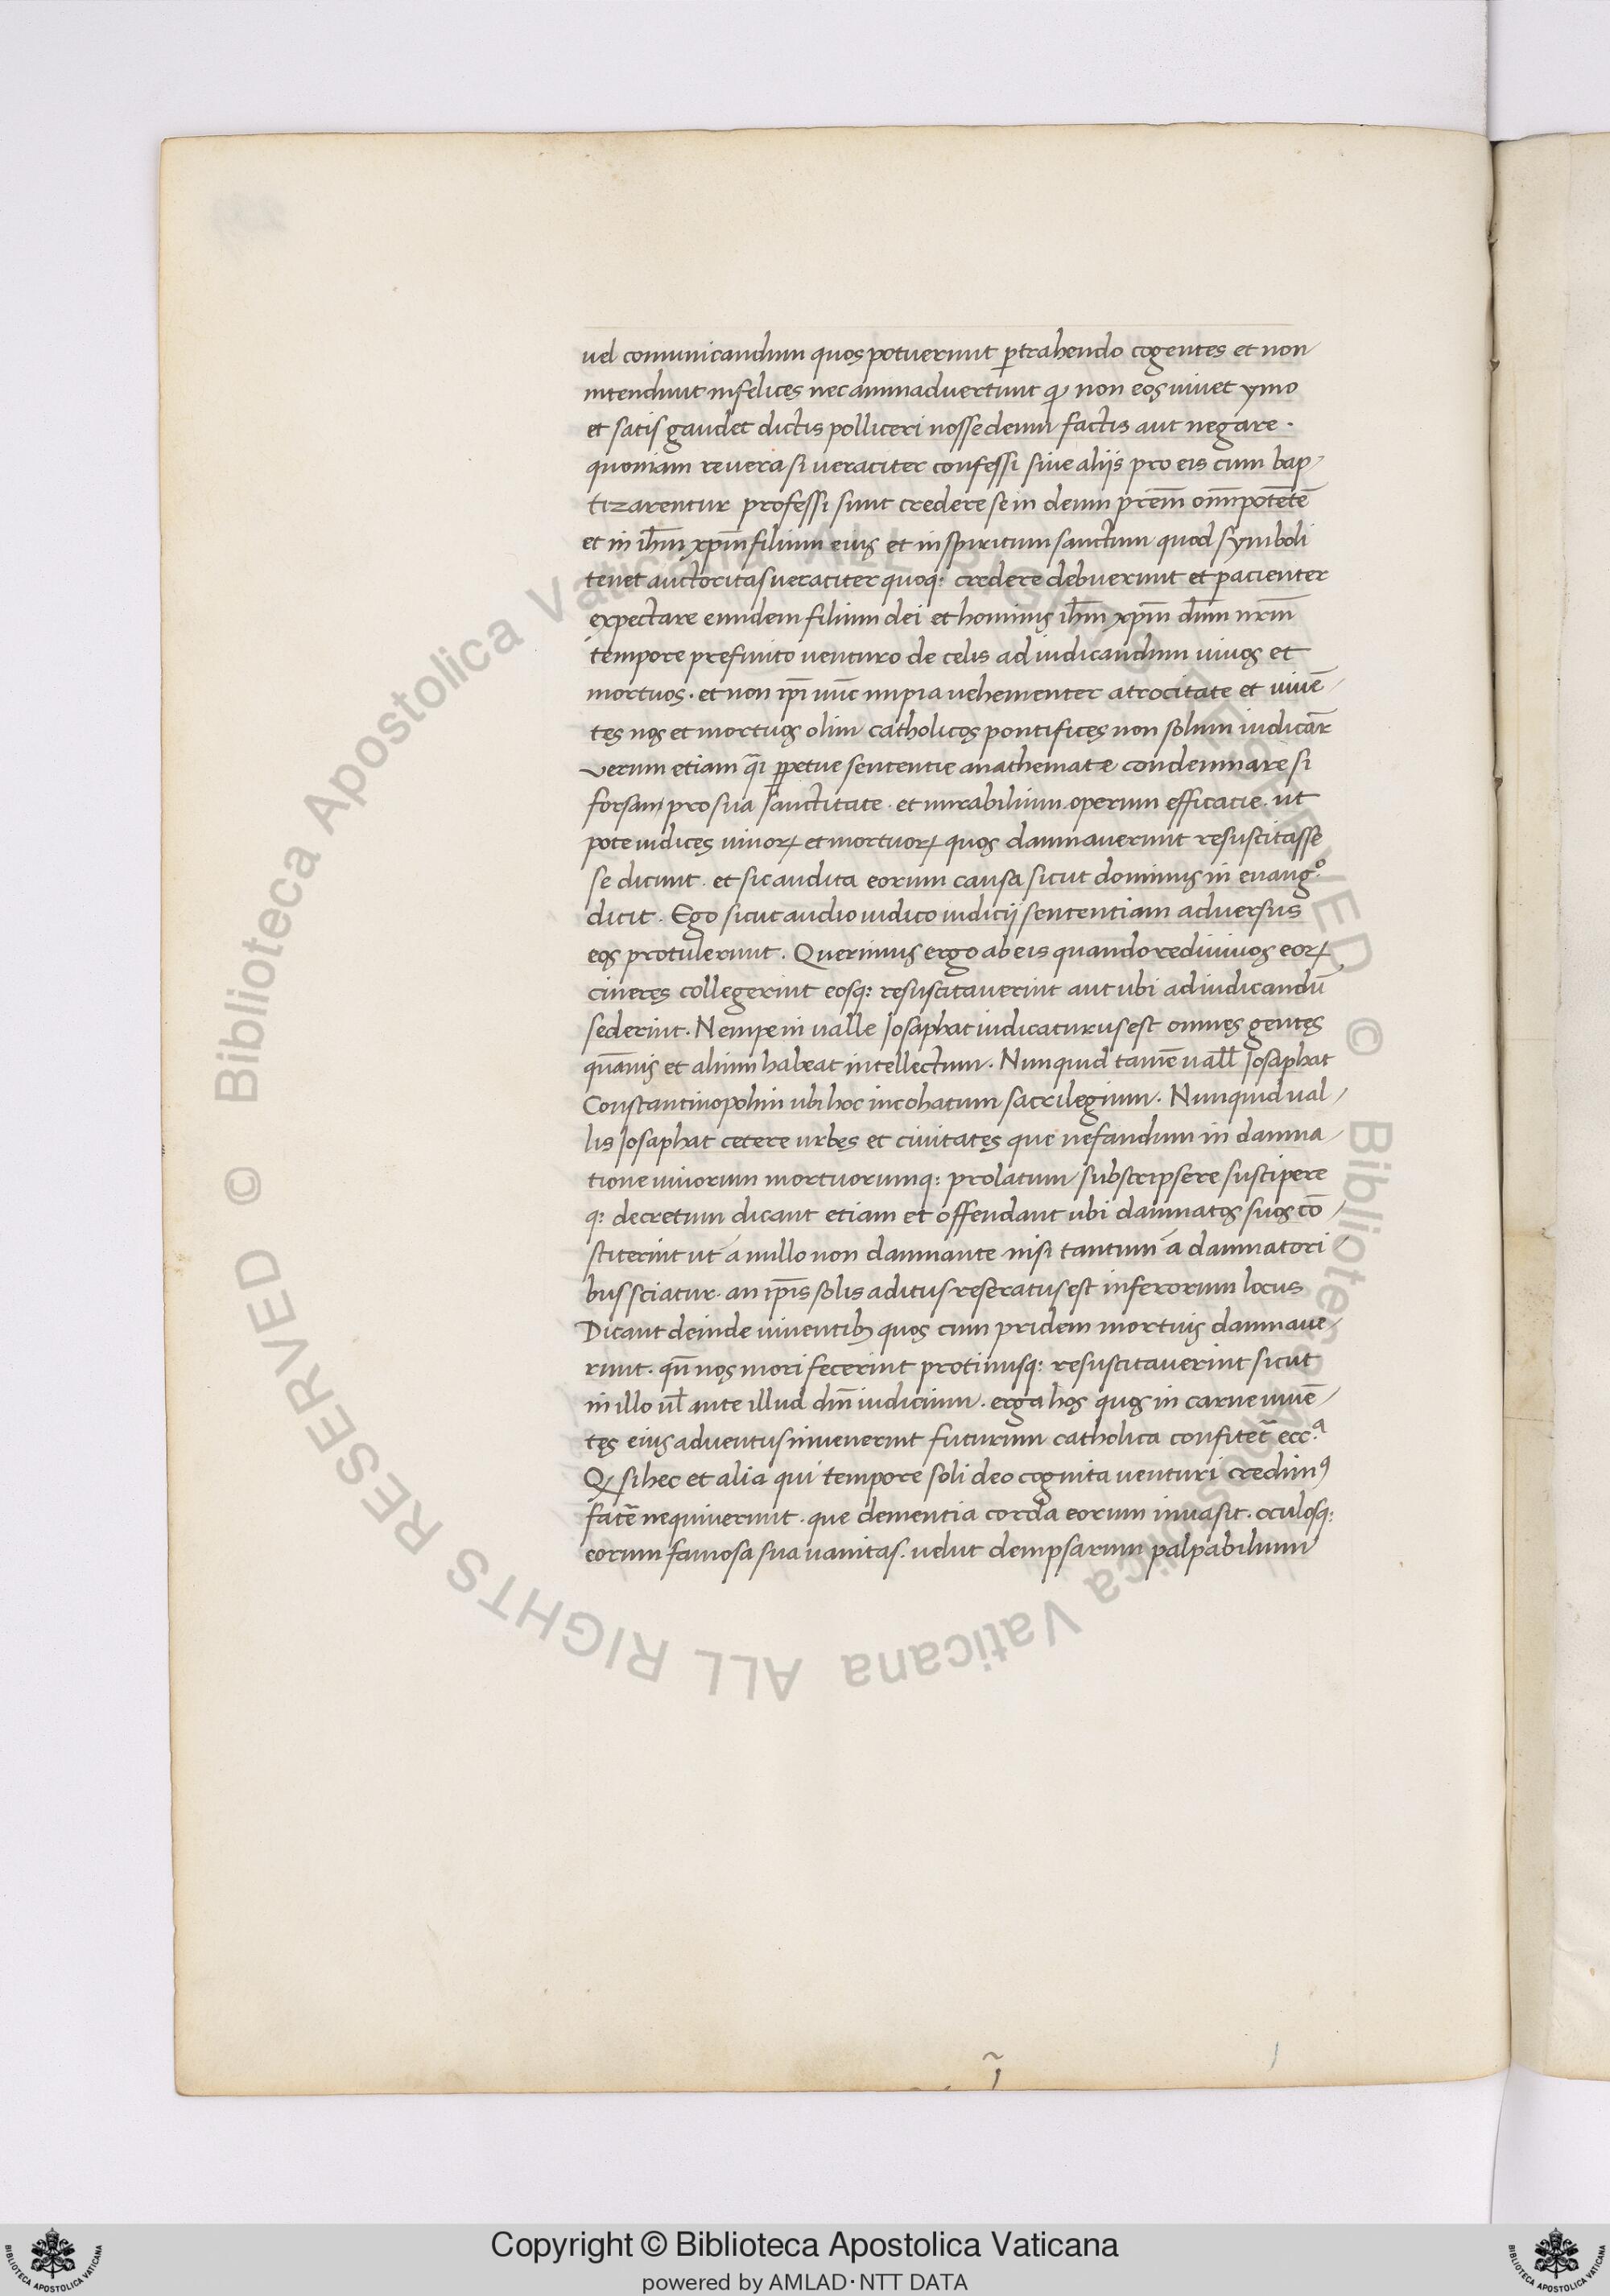 uel comunicandum quos potuerunt ꝑtrahendo cogentes et non
intendunt infelices nec animadvertunt ꝙ non eos iuvet ymo
et satis gaudet dictis polliceri nosse deum factis aut negare .
quoniam revera si veraciter confessi sive aliis pro eis cum bap-
tizarentur professi sunt credere se in deum prem̅ om̅ipotētē
et in ihm̅ xpm̅ filium eius et in spiritum sanctum quod symboli
tenet auctoritas veraciter quoq: credere debuerunt et pacienter
expectare eundem filium dei et hominis ihm̅ xpm̅ dum̅ nrm̅
tempore prefinito venturo de celis ad iudicandum vivos et
mortuos . et non ip̅i nu̅c impia vehementer atrocitate et viuē-
tes nos et mortuos olim catholicos pontifices non solum iudicar̄
verum etiam q̅i ꝑpetue sententie anathemate condemnare si
forsan pro sua sanctitate . et mirabilium operum efficacie . ut
pote iudices vivoꝝ et mortuoꝝ quos damnaverunt resuscitasse
se dicunt . et sic audita eorum causa sicut dominus in evang.º
dicit . Ego sicut audio iudico iudicij sententiam adversus
eos protulerunt . Querimus ergo ab eis quando redivivos eoꝝ
cineres collegerint eosq: resuscitaverint aut ubi ad iudicandū
sederint . Nempe in ualle Josaphat iudicaturus est omnes gentes
qua̅vis et alium habeat intellectum . Nunquid tamē uall̅ Josaphat
Constantinopolim ubi hoc incohatum sacrilegium . Nunquid ual-
lis Josaphat cetere urbes et civitates que nefandum in damna-
tione vivorum mortuorumq: prolatum subscripsere suscipere
q: decretum dicant etiam et offendant ubi damnatos suos cō-
stiterint ut a nullo non damnante nisi tantum a damnatori-
bus sciatur . an ip̅is solis aditus reseratus est inferorum locus
Dicant deinde viventibꝫ quos cum pridem mortuis damnave-
runt . qn̅ nos mori fecerint protinusq: resuscitaverint sicut
in illo ul̅ ante illud dni̅ iudicium . erga hos quos in carne viuē-
tes eius adventus invenerint futurum catholica confitet̄ ecc.ª
Qꝫ si hec et alia qui tempore soli deo cognita venturi credimꝰ
fatē nequiverunt . que dementia corda eorum invasit . oculosq:
eorum famosa sua vanitas . velut dempsarum palpabilium
© Biblioteca Apostolica Vaticana ALL RIGHTS RESERVED © Biblioteca Apostolica Vaticana ALL RIGHTS RESERVED
Copyright © Biblioteca Apostolica Vaticana
powered by AMLAD·NTT DATA
BIBLIOTECA APOSTOLICA VATICANA
BIBLIOTECA APOSTOLICA VATICANA